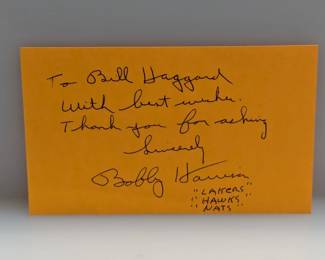 To Bill Haggard
With best wishes.
Thank you for asking
Sincerely
Bobby Harrison
"LAKERS"
"HAWKS"
"NATS"